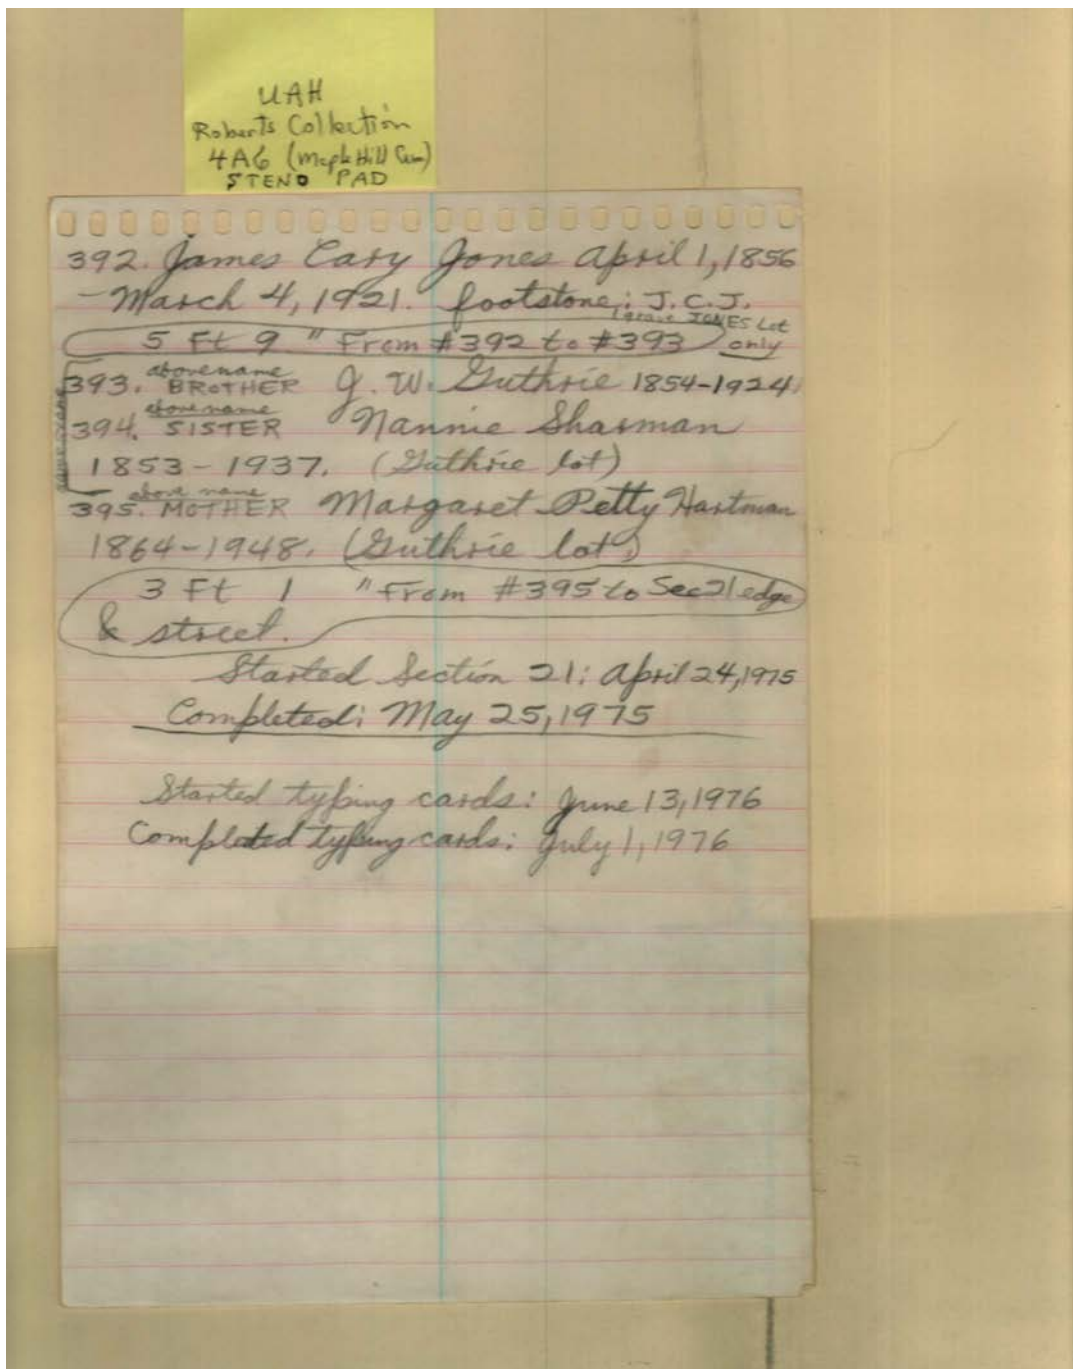 UAH
Roberts Collection
4A6 (Maple Hill Cem)
STENO PAD
392. James Cary Jones April 1, 1856
- March 4, 1921. footstone: J.C.J.
1 grave JONES Lot
5 Ft 9 " From #392 to #393 only
above name
393. BROTHER G. W. Guthrie 1854-1924
above name
394. SISTER Nannie Sharman
1853-1937. (Guthrie lot)
above name
395. MOTHER Margaret Petty Hartman
1864-1948. (Guthrie lot)
3 Ft 1 " From #395 to Sec 21 edge
& street.
Started Section 21: April 24, 1975
Completed: May 25, 1975
Started typing cards: June 13, 1976
Completed typing cards: July 1, 1976